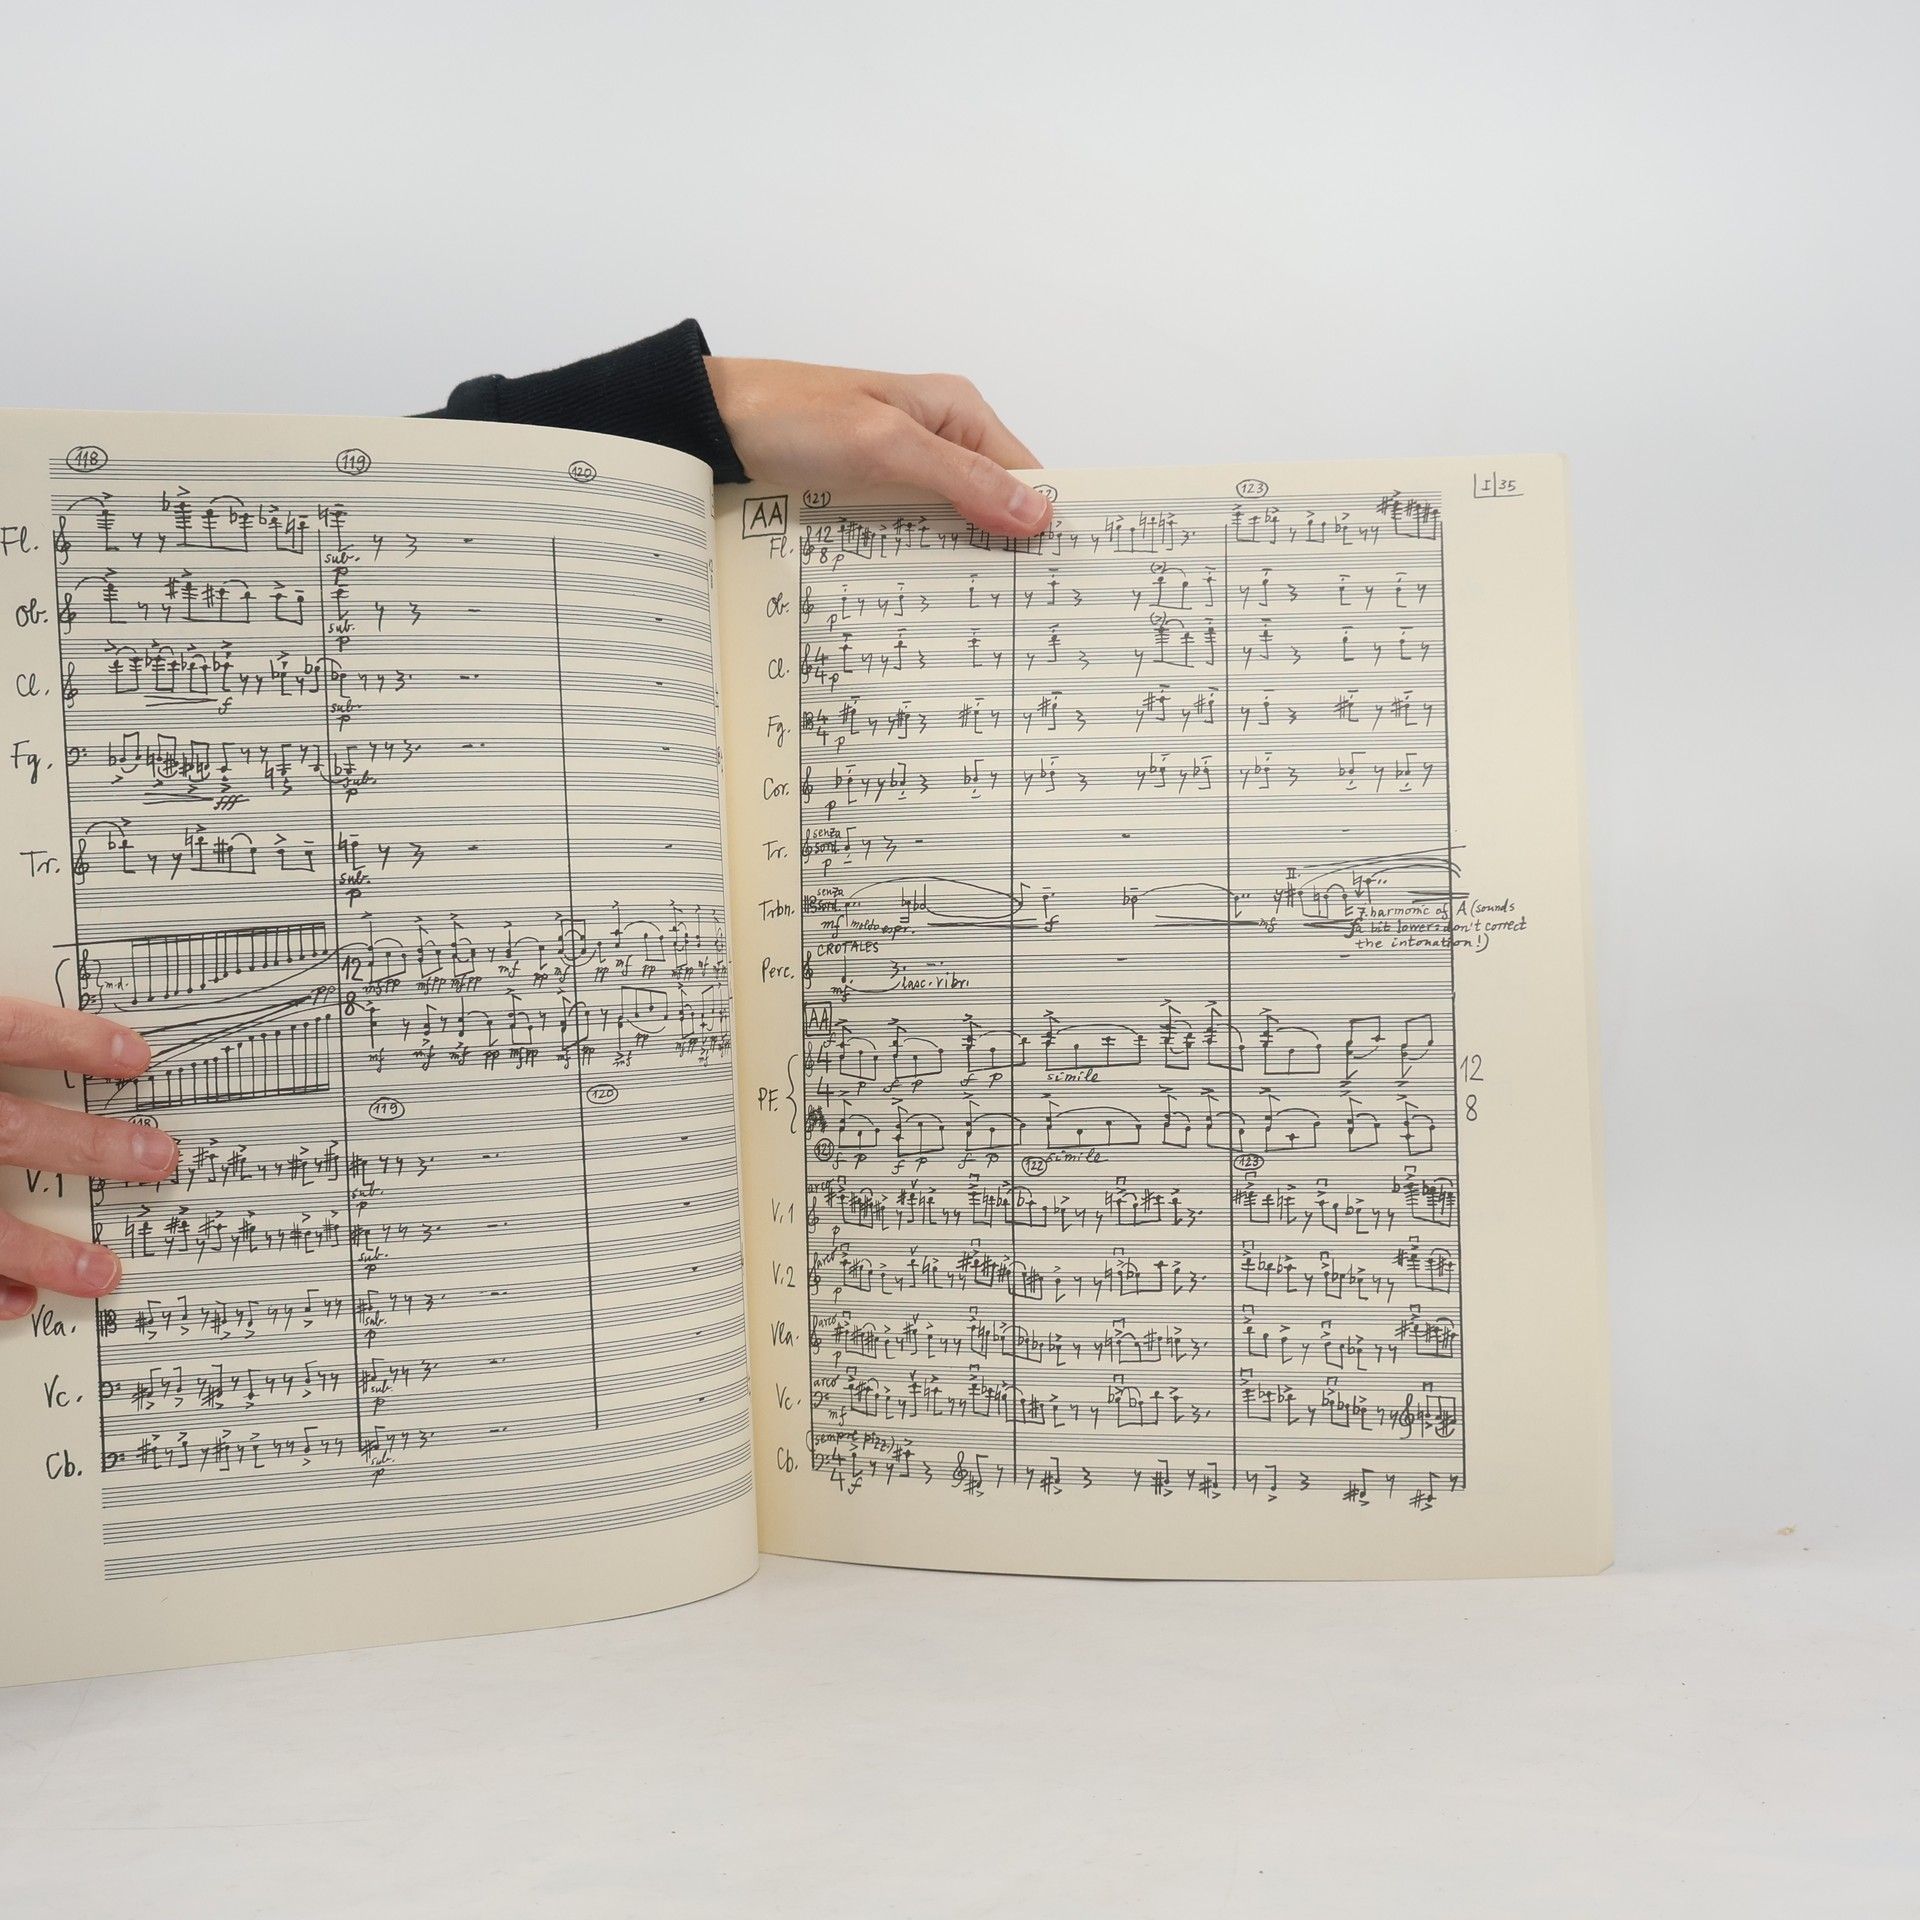 118 119 120
Fl.
sub.
p
Ob.
sub.
p
Cl.
f
sub.
p
Fg.
fff
sub.
p
Tr.
sub.
p
m.d.
12
8
mf pp mf pp mf pp mf pp mf pp mf pp
pp
mf mf mf pp mf pp mf pp mf pp
118 119 120
V.1
sub.
p
sub.
p
Vla.
sub.
p
Vc.
sub.
p
Cb.
sub.
p
I 35
AA 121 123
Fl. 12
8 p
Ob.
p
Cl. 4
4 p
Fg. 4
4 p
Cor.
p
Tr. senza
sord.
p
Trbn. senza
sord.
mf molto espr. f mf f
II.
7. harmonic of A (sounds
a bit lower: don't correct
the intonation!)
CROTALES
Perc.
mf lasc. vibr.
AA
4
4
p f p f p simile
PF.
12
8
121 f p f p f p 122 simile 123
V.1 arco
p
V.2 arco
p
Vla. arco
p
Vc. arco
mf
(sempre pizz.)
Cb. 4
4 f